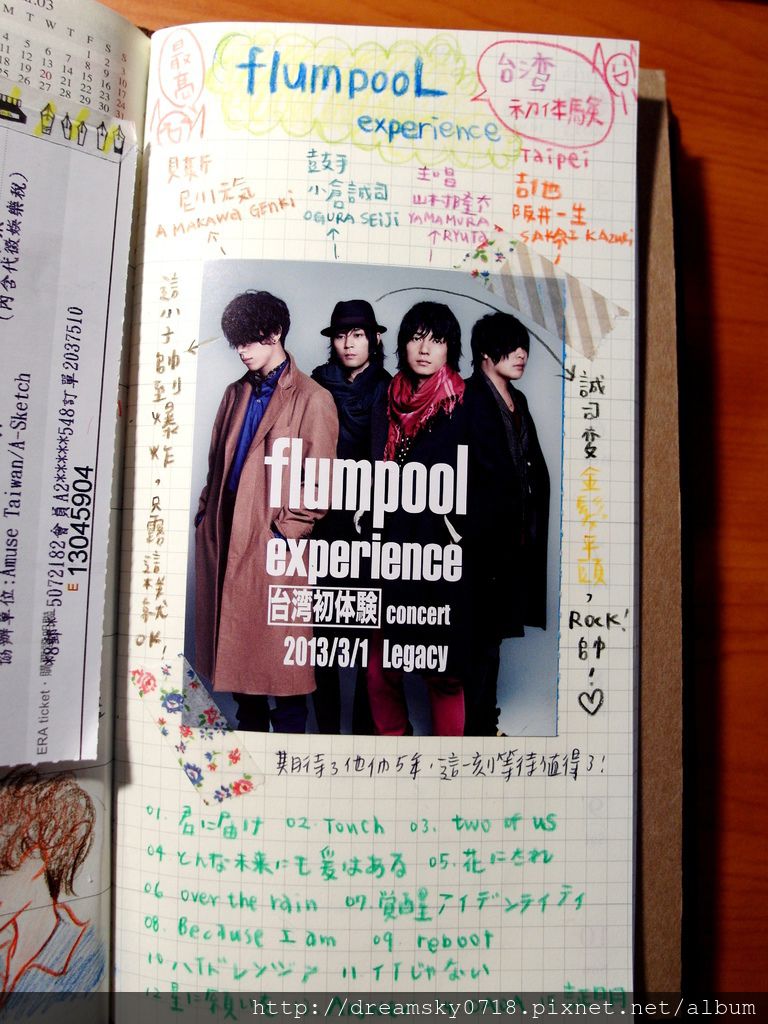 .03
M T W T F S
1 2 3
4 5 6 7 8 9 10
11 12 13 14 15 16 17
18 19 20 21 22 23 24
25 26 27 28 29 30 31
(內含代徵娛樂稅)
協辦單位:Amuse Taiwan/A-Sketch
5072182會員A2*****548訂單2037510
E 13045904
ERA ticket
最高
flumpool
experience
台湾
初体験
Taipei
貝斯
尼川元気
AMAKAWA GENKI
鼓手
小倉誠司
OGURA SEIJI
主唱
山村隆太
YAMAMURA
RYUTA
吉他
阪井一生
SAKAI KAZUKI
這小子帥到爆炸,只露這樣就OK!
誠司變金髮平頭,ROCK!帥!♡
flumpool
experience
台湾初体験 concert
2013/3/1 Legacy
期待了他們5年,這一刻等待值得了!
01. 君に届け 02. Touch 03. two of us
04 どんな未来にも愛はある 05. 花になれ
06 over the rain 07. 覚醒アイデンティティ
08. Because I am 09. reboot
10 ハイドレンジア 11 イイじゃない
12 星に願いを 証明
http://dreamsky0718.pixnet.net/album